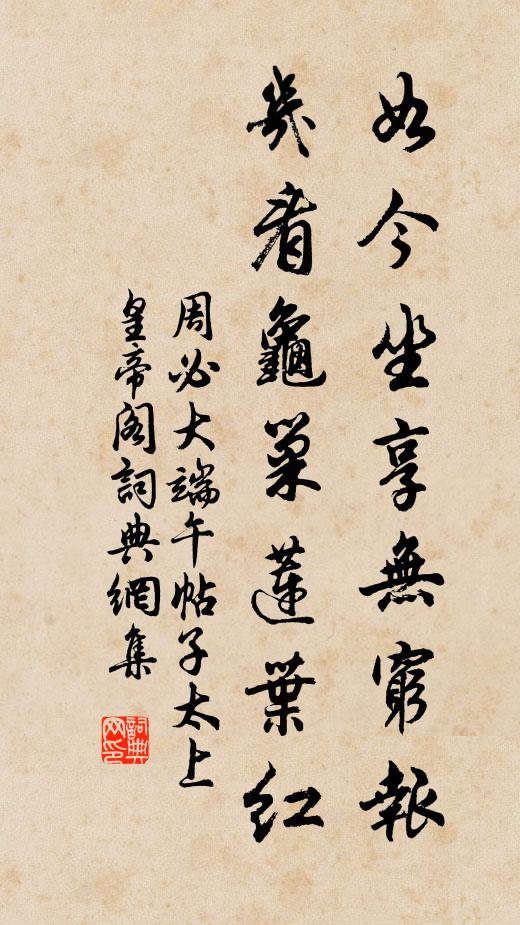 如今坐享無窮報
幾看龜巢蓮葉紅
周必大端午帖子太上
皇帝閣詞典網集
詞典網印